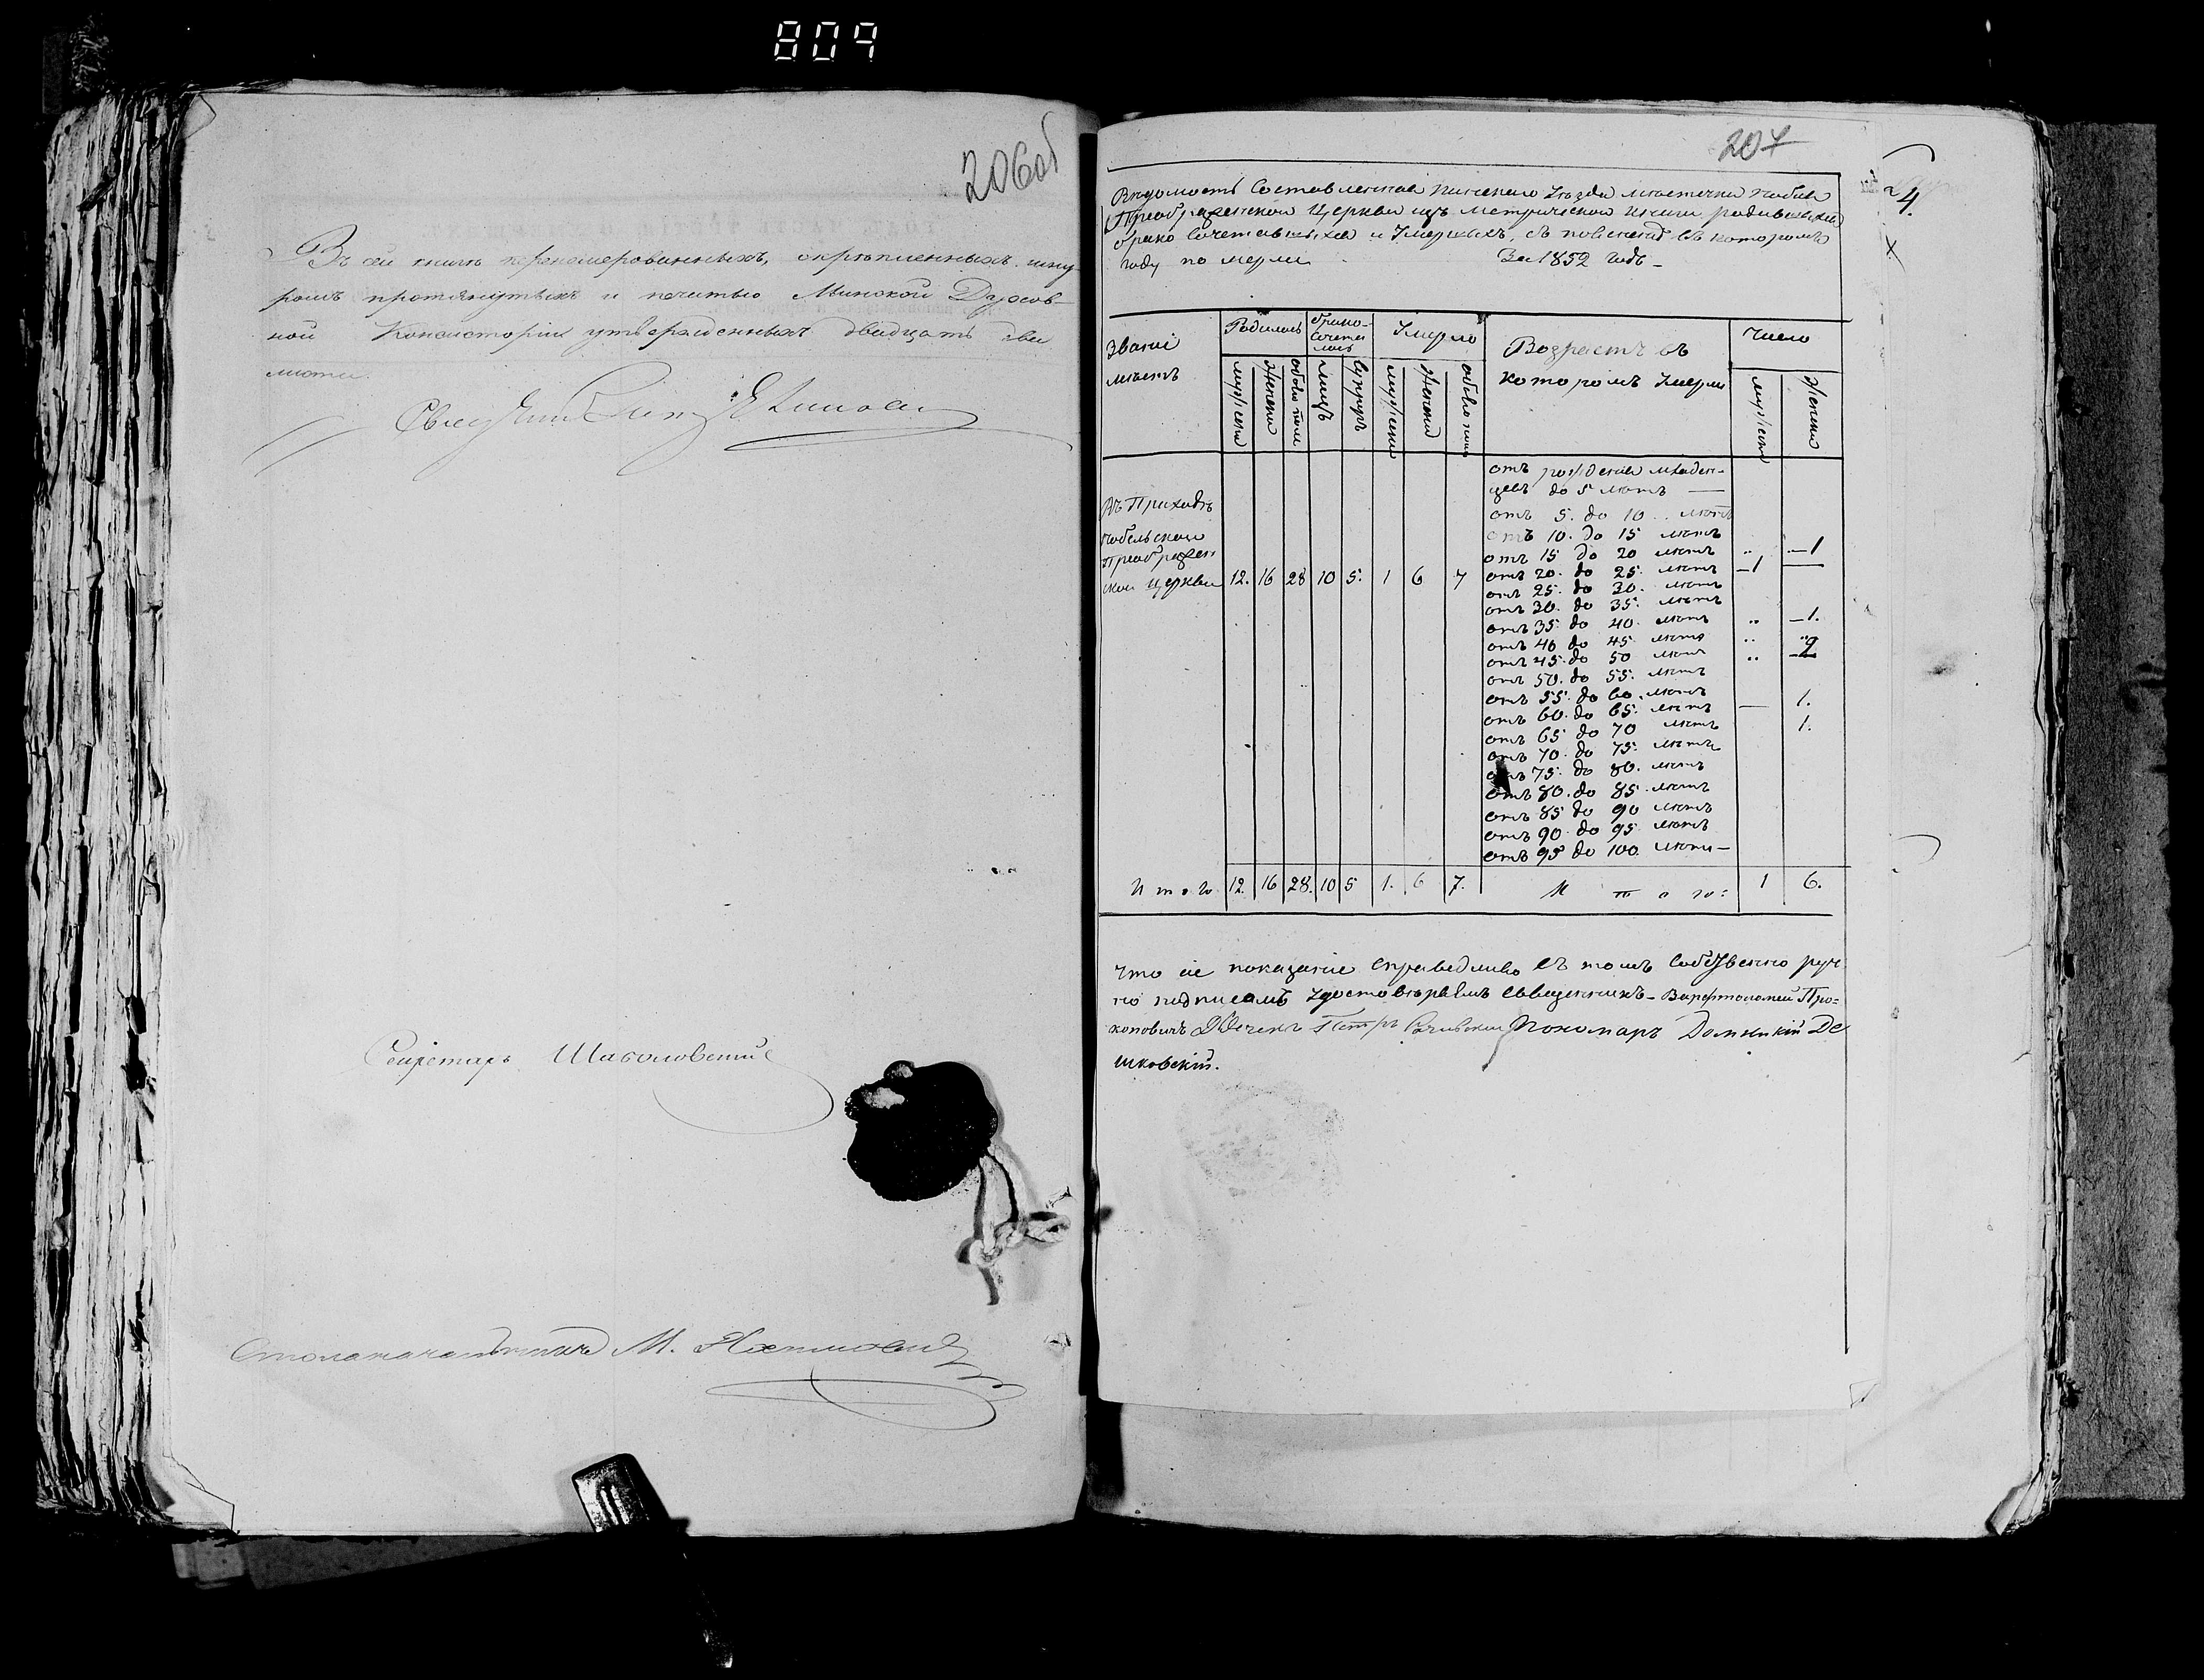 809
206об
Въ сей книгѣ перенумерованныхъ, скрѣпленныхъ, шну-
ромъ протянутыхъ и печатью Минской Духов-
ной Консисторіи утвержденныхъ двадцать два
листа.
Секретарь
Столоначальникъ М.
207
4.
Вѣдомость Составленная Пинскаго уѣзда мѣстечка
Преображенской Церкви изъ метрической книги родившихся
брако Сочетавшихся и Умершихъ, съ въ которомъ
году по мерли За 1852 годъ
Званіе мѣстъ
Родилось
Брако-Сочета лось
Умерло
Возрастъ въ которомъ Умерли
Число
мужеска женска обоего пола лицъ супруж мужеска женска обоего пола мужеска женска
отъ рожденія младен-
цевъ до 5 лѣтъ —
отъ 5. до 10 лѣтъ
отъ 10. до 15 лѣтъ
отъ 15 до 20 лѣтъ .. —1
отъ 20. до 25. лѣтъ —1 —
отъ 25. до 30. лѣтъ
отъ 30. до 35. лѣтъ
отъ 35. до 40. лѣтъ .. —1.
отъ 40 до 45 лѣтъ ..
отъ 45. до 50 лѣтъ .. 2
отъ 50. до 55. лѣтъ
отъ 55. до 60. лѣтъ — 1.
отъ 60. до 65. лѣтъ
отъ 65 до 70 лѣтъ 1.
отъ 70. до 75. лѣтъ
отъ 75. до 80. лѣтъ
отъ 80. до 85. лѣтъ
отъ 85 до 90 лѣтъ
отъ 90. до 95 лѣтъ
отъ 95 до 100. лѣтъ —
Въ Приходѣ
Преображен
ской Церкви 12. 16 28 10 5. 1 6 7
Итого 12. 16 28. 10 5 1. 6 7. Итого: 1 6.
Что сіе показаніе справедливо въ томъ Собственно руч
но подписомъ удостовѣряемъ Священникъ Варфоломей Про=
коповичъ Дьячекъ Петръ Пономарь Доминикій Де
шковскій.